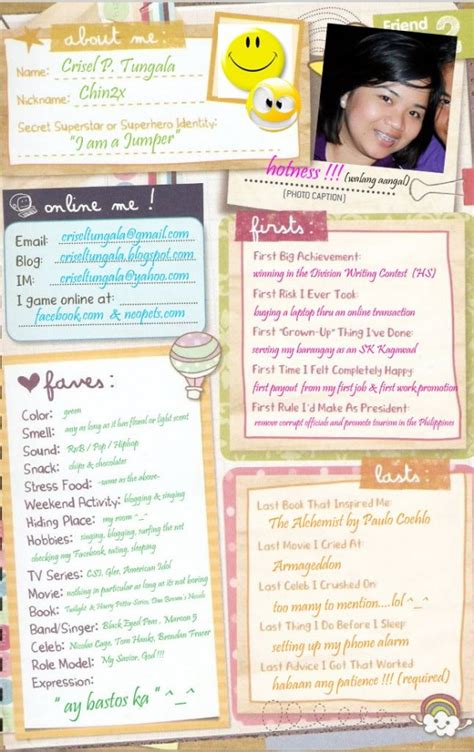 about me:
Name: Crisel P. Tungala
Nickname: Chin2x
Secret Superstar or Superhero Identity:
"I am a Jumper"
Friend 2
hotness !!! (walang aangal)
[PHOTO CAPTION]
online me !
Email: criseltungala@gmail.com
Blog: criseltungala.blogspot.com
IM: criseltungala@yahoo.com
I game online at:
facebook.com & neopets.com
firsts:
First Big Achievement:
winning in the Division Writing Contest (HS)
First Risk I Ever Took:
buying a laptop thru an online transaction
First "Grown-Up" Thing I've Done:
serving my barangay as an SK Kagawad
First Time I Felt Completely Happy
first payout from my first job & first work promotion
First Rule I'd Make As President:
remove corrupt officials and promote tourism in the Philippines
faves:
Color: green
Smell: any as long as it has floral or light scent
Sound: RnB / Pop / Hiphop
Snack: chips & chocolates
Stress Food: -same as the above-
Weekend Activity: blogging & singing
Hiding Place: my room ^_^
Hobbies: singing, blogging, surfing the net
checking my Facebook, eating, sleeping
TV Series: CSI, Glee, American Idol
Movie: nothing in particular as long as its not boring
Book: Twilight & Harry Potter Series, Dan Brown's Novels
Band/Singer: Black Eyed Peas, Maroon 5
Celeb: Nicolas Cage, Tom Hanks, Brendan Fraser
Role Model: My Savior, God !!!
Expression:
" ay bastos ka " ^_^
lasts:
Last Book That Inspired Me
The Alchemist by Paulo Coehlo
Last Movie I Cried At:
Armageddon
Last Celeb I Crushed On
too many to mention....lol ^_^
Last Thing I Do Before I Sleep:
setting up my phone alarm
Last Advice I Got That Worked:
habaan ang patience !!! (required)